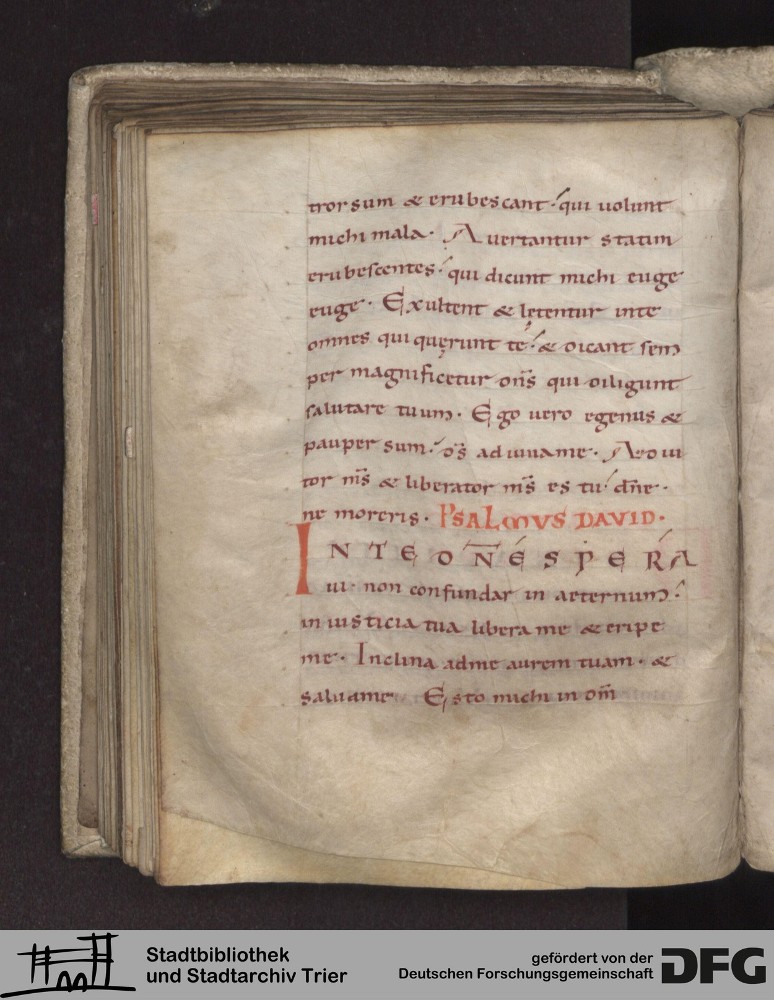 trorsum & erubescant. qui uolunt
michi mala. Auertantur statim
erubescentes. qui dicunt michi euge
euge. Exultent & letentur inte
omnes qui quęrunt te. & dicant sem
per magnificetur dn̄s qui diligunt
salutare tuum. Ego uero egenus &
pauper sum. d̄s adiuuame. Adiu
tor m̄s & liberator m̄s es tu dn̄e.
ne moreris. PSALMVS DAVID.
INTE DN̄E SPERA
ui. non confundar in aeternum.
in iusticia tua libera me & eripe
me. Inclina adme aurem tuam. &
saluame Esto michi in dm̄
Stadtbibliothek
und Stadtarchiv Trier
gefördert von der
Deutschen Forschungsgemeinschaft
DFG